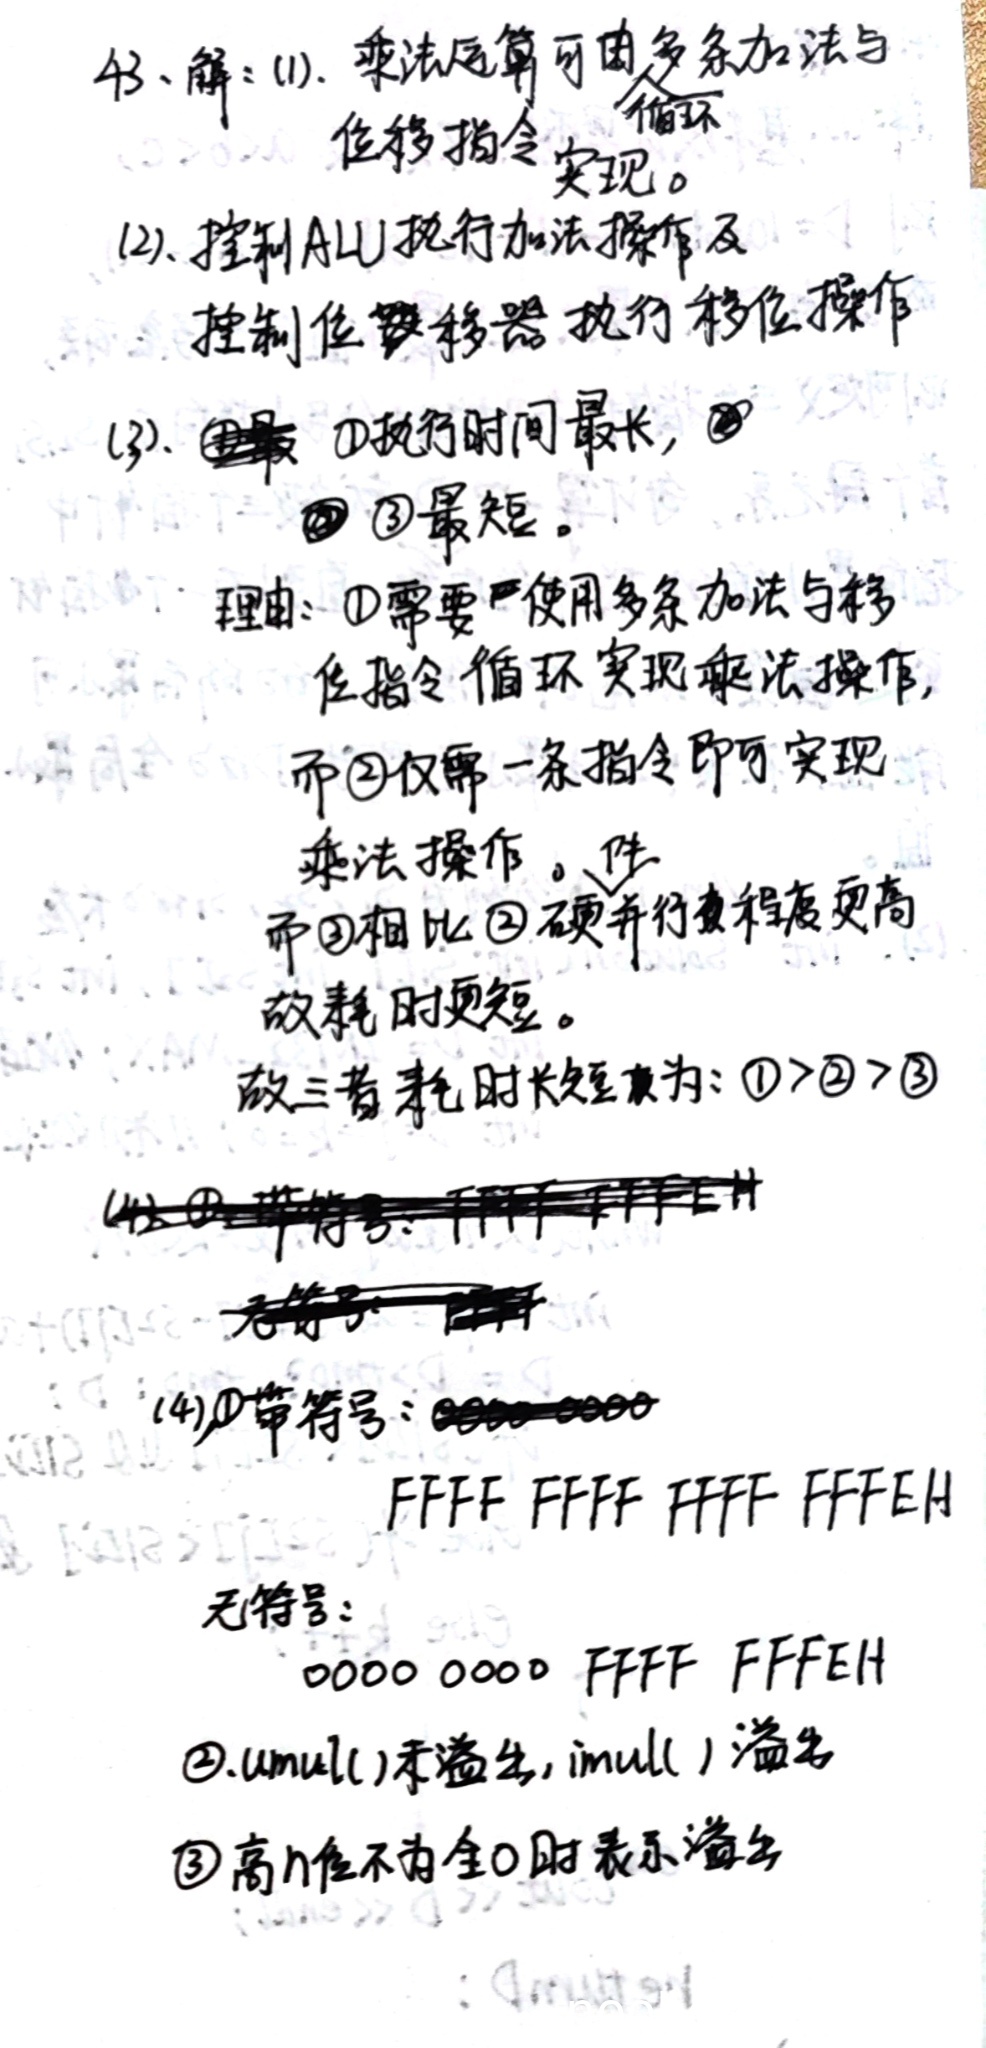 43、解：(1). 乘法运算可由多条加法与
循环
位移指令 实现。
(2). 控制ALU执行加法操作及
控制位移器执行移位操作
(3). ①执行时间最长，
③最短。
理由：①需要使用多条加法与移
位指令循环实现乘法操作,
而②仅需一条指令即可实现
乘法操作。件
而③相比②硬并行程度更高
故耗时更短。
故三者耗时长短为：①>②>③
(4). ① 带符号：FFFF FFFEH
无符号： FFFF
(4).①带符号：0000 0000
FFFF FFFF FFFF FFFEH
无符号：
0000 0000 FFFF FFFEH
②.umul()未溢出,imul()溢出
③高n位不为全0时表示溢出